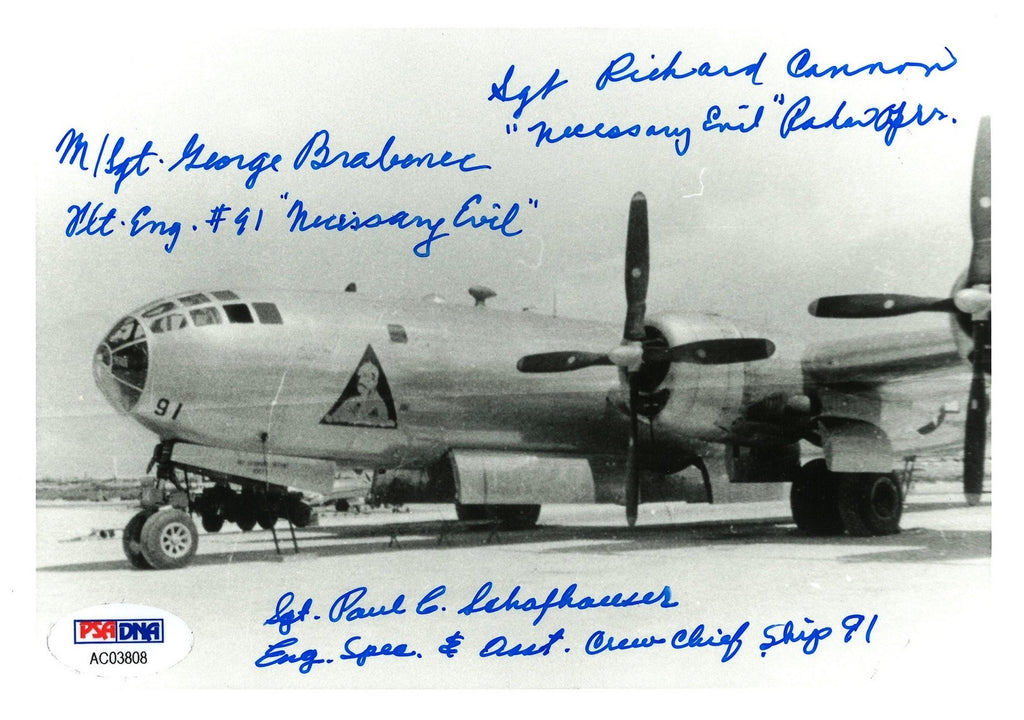 Sgt Richard Cannon
"Necessary Evil" Radar Oprs.
M/Sgt. George Brabenec
Flt. Eng. #91 "Necessary Evil"
91
Sgt. Paul C. Schafhauser
Eng. Spec. & Asst. Crew Chief Ship 91
PSA DNA
AC03808